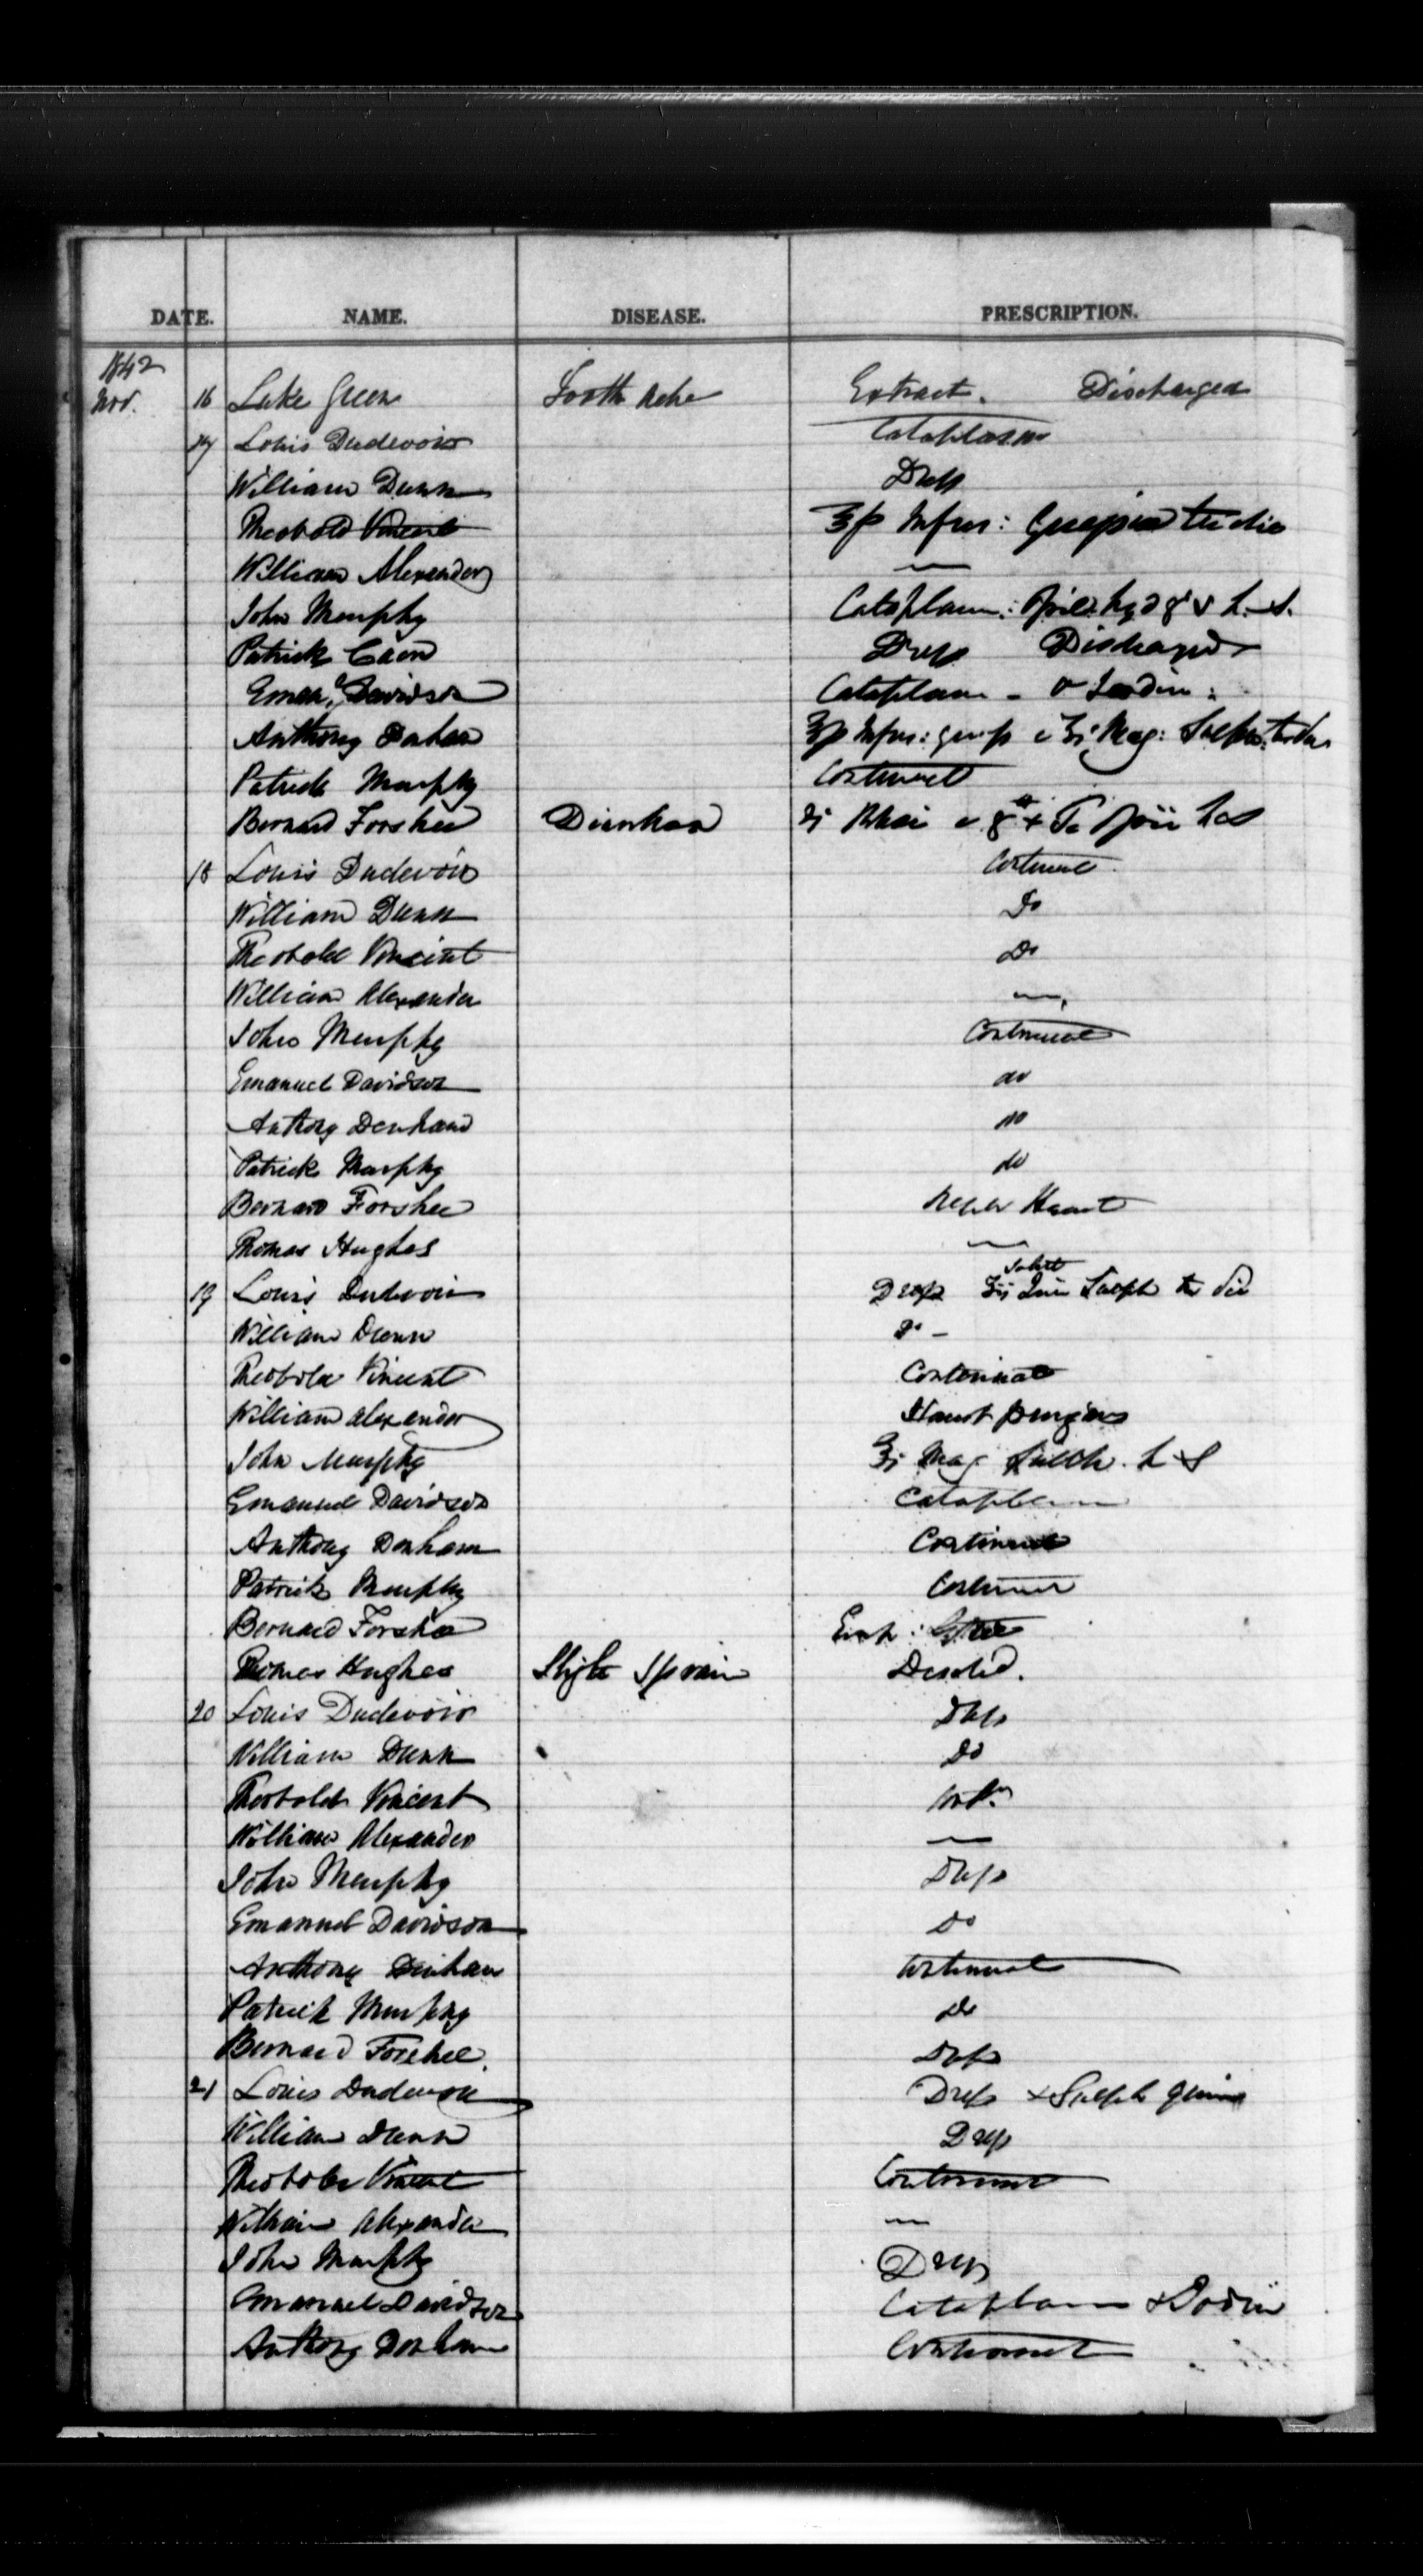 DATE. NAME. DISEASE. PRESCRIPTION.
1842
Nov. 16 Luke Green Tooth Ache Extract. Discharged
17 Louis Dudevoir Cataplasm
William Dunn Dress
Theobold Vincent Infus: ter die
William Alexander —
John Murphy Cataplasm: h.s.
Patrick Caen Dress Discharged
Eman. Davidson Cataplasm
Anthony Denham Infus: Mag: Sulph:
Patrick Murphy Continued
Bernard Forshee Diarrhea Rhei
18 Louis Dudevoir Continued
William Dunn Do
Theobold Vincent Do
William Alexander —
John Murphy Continued
Emanuel Davidson do
Anthony Denham do
Patrick Murphy do
Bernard Forshee Haust
Thomas Hughes —
19 Louis Dudevoir Dress Sulph
William Dunn Do —
Theobold Vincent Continued
William Alexander Haust purgans
John Murphy Mag Sulph. h s
Emanuel Davidson Cataplasm
Anthony Denham Continued
Patrick Murphy Continued
Bernard Forshee
Thomas Hughes Slight Sprain Disched.
20 Louis Dudevoir Dress
William Dunn Do
Theobold Vincent
William Alexander —
John Murphy Dress
Emanuel Davidson Do
Anthony Denham Continued
Patrick Murphy Do
Bernard Forshee. Dress
21 Louis Dudevoir Dress + Sulph quinine
William Dunn Dress
Theobold Vincent Continued
William Alexander —
John Murphy Dress
Emanuel Davidson Cataplasm
Anthony Denham Continued